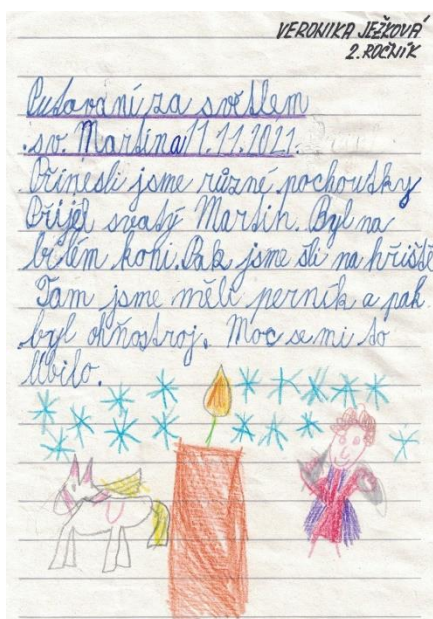 VERONIKA JEŽKOVÁ
2. ROČNÍK
Putování za světlem
sv. Martina 11.11.2021.
Přinesli jsme různé pochoutky
Přijel svatý Martin. Byl na
bílém koni. Pak jsme šli na hřiště
Tam jsme měli perník a pak
byl ohňostroj. Moc se mi to
líbilo.